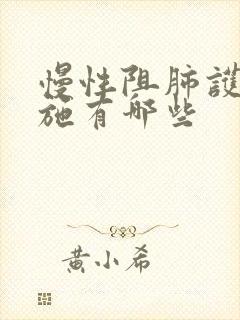 慢性阻肺護
施有哪些
黄小希